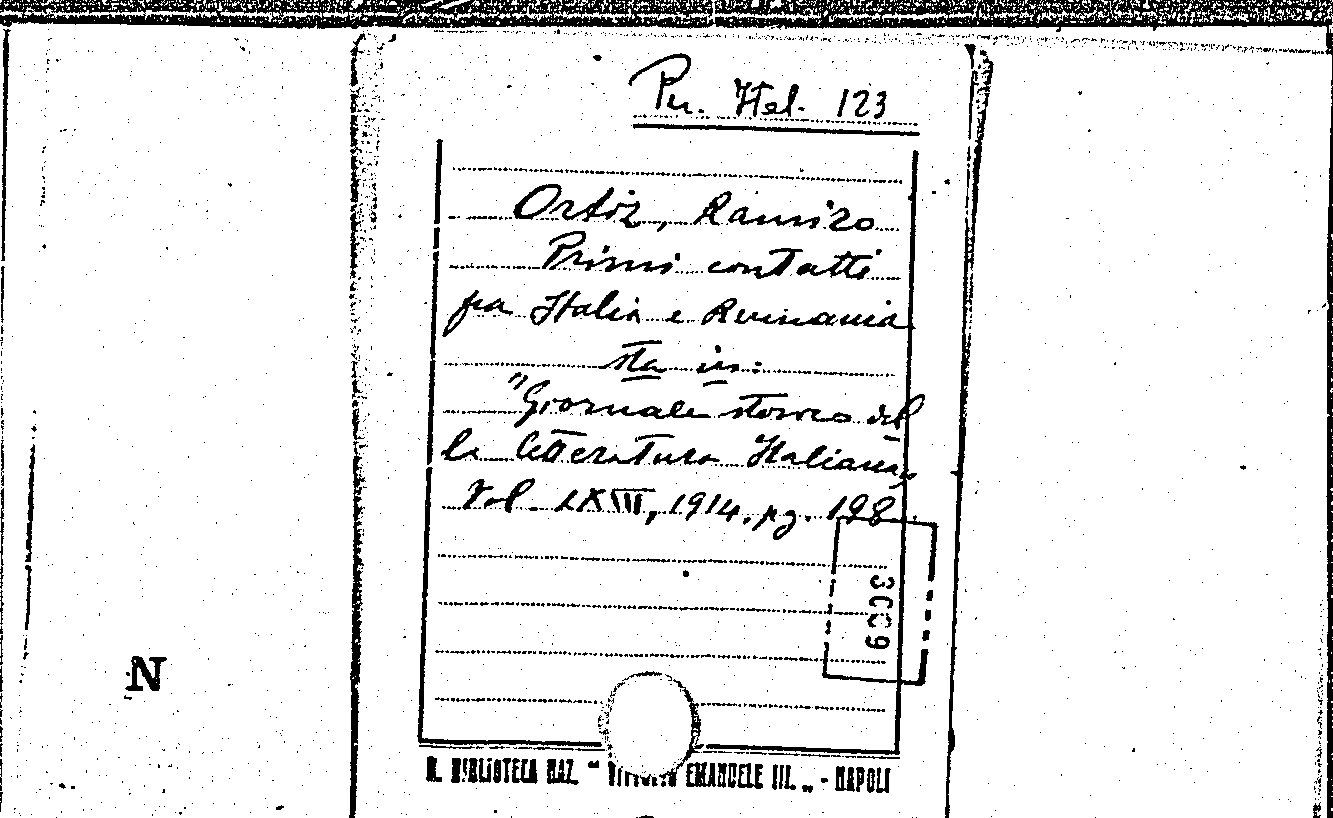 Per. Ital. 123
Ortiz, Ramiro
Primi contatti
fra Italia e Rumania
sta in:
"Giornale storico del
la letteratura Italiana,,
Vol. LXIII, 1914. pg. 198
3009
N
R. BIBLIOTECA NAZ. " VITTORIO EMANUELE III. „ - NAPOLI